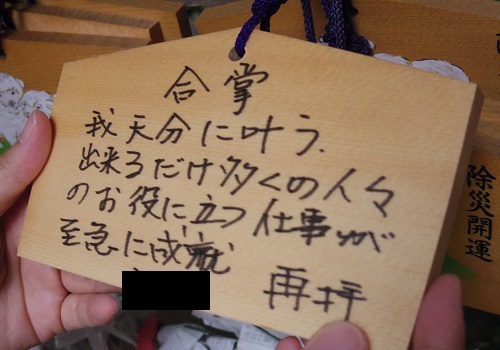 合掌
我天分に叶う、
出来るだけ多くの人々
のお役に立つ仕事が
至急に成就
再拝
除災開運